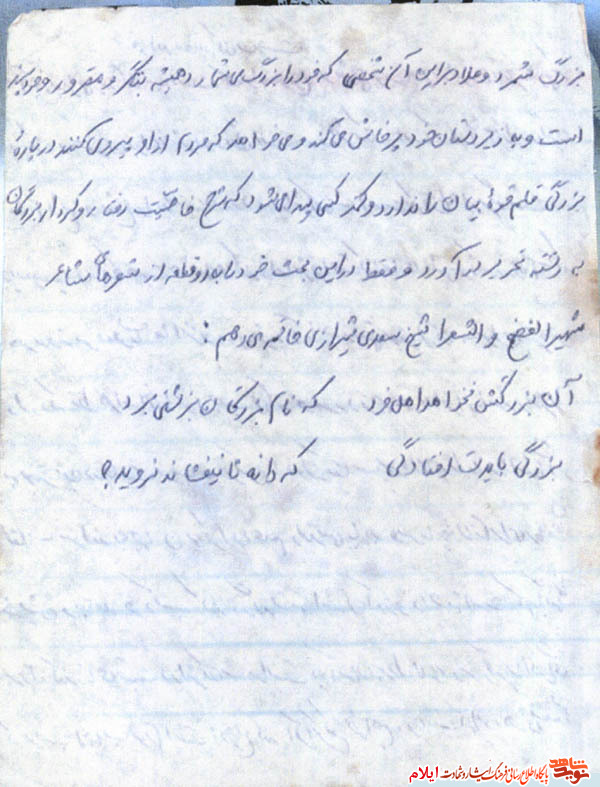 بزرگ شمرد و علاوه براین آن شخصی که خود را بزرگ می شمارد همیشه و مغرور و خودپسند
است و به زیردستان خود پرخاش می کند و می خواهد که مردم از او پیروی کنند درباره
بزرگی قلم قوهٔ بیان را ندارد و کمتر کسی پیدا می شود که شرح خاصیت رفتار و کردار بزرگان
به رشته تحریر درآورد و فقط دراین بحث خود را به دو قطعه از شعرهای شاعر
شهیر افصح الشعرا شیخ سعدی شیرازی خاتمه می دهم :
آن بزرگش نخوانند اهل خرد که نام بزرگان بزشتی برد
بزرگی بایدت افتادگی که دانه تا نیفشاند نروید
نوید شاهد
پایگاه اطلاع رسانی فرهنگ ایثار و شهادت ایلام